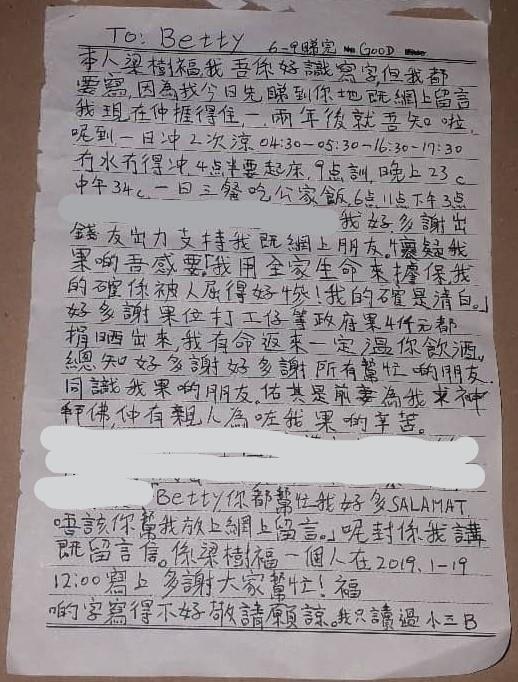 To: Betty 6-9睇完 GOOD
本人梁樹福我吾係好識寫字但我都
要寫,因為我今日先睇到你地既網上留言
我現在仲捱得住,一,兩年後就吾知啦,
呢到一日冲2次涼04:30-05:30-16:30-17:30
冇水冇得冲,4点半要起床,9点訓,晚上23c
中午34c,一日三餐吃公家飯,6点11点下午3点
我好多謝出
錢友出力支持我既網上朋友。懷疑我
果啲吾感要「我用全家生命來擔保,我
的確係被人屈得好慘!我的確是清白。」
好多謝果位打工仔等政府果4仟元都
捐晒出來,我有命返來一定溫你飲酒。
總知好多謝好多謝所有幫忙啲朋友.
同識我果啲朋友.佑其是前妻為我求神
拜佛,仲有親人為咗我果啲辛苦。
Betty你都幫忙我好多SALAMAT
唔該你幫我放上網上留言。」呢封係我講
既留言信。係梁樹福一個人在2019.1-19
12:00寫上 多謝大家幫忙!福
啲字寫得不好敬請願諒。我只讀過小三B